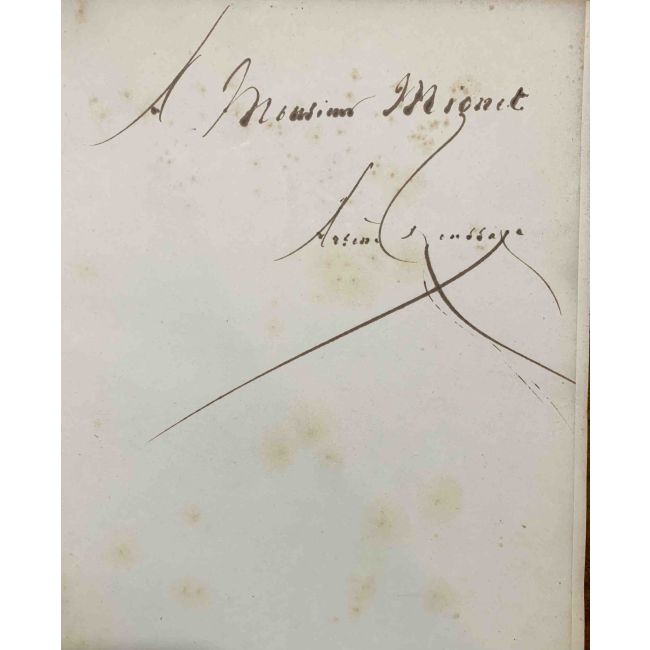 A Monsieur Mignet
Arsène Houssaye